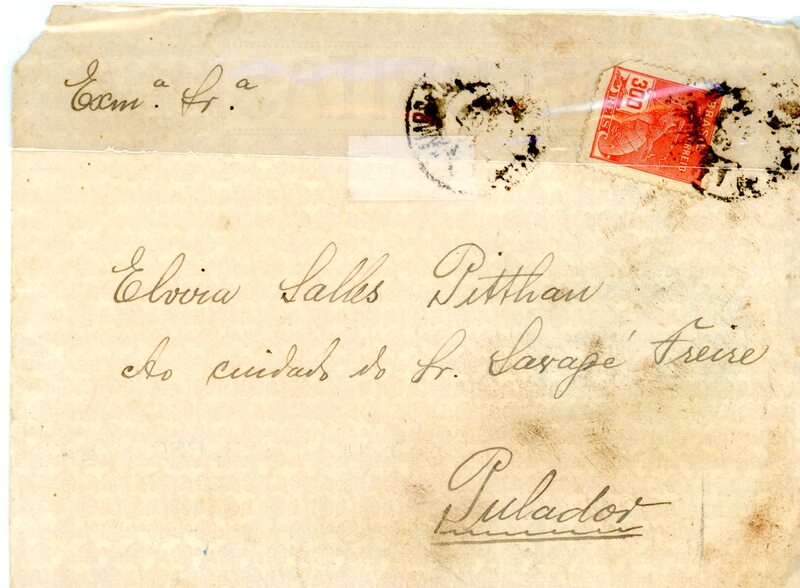 Exmª. Srª
300
BRASIL
CORREIO
REIS
Elvira Salles Pitthan
Ao cuidado do Sr. Sarapé Freire
Pulador